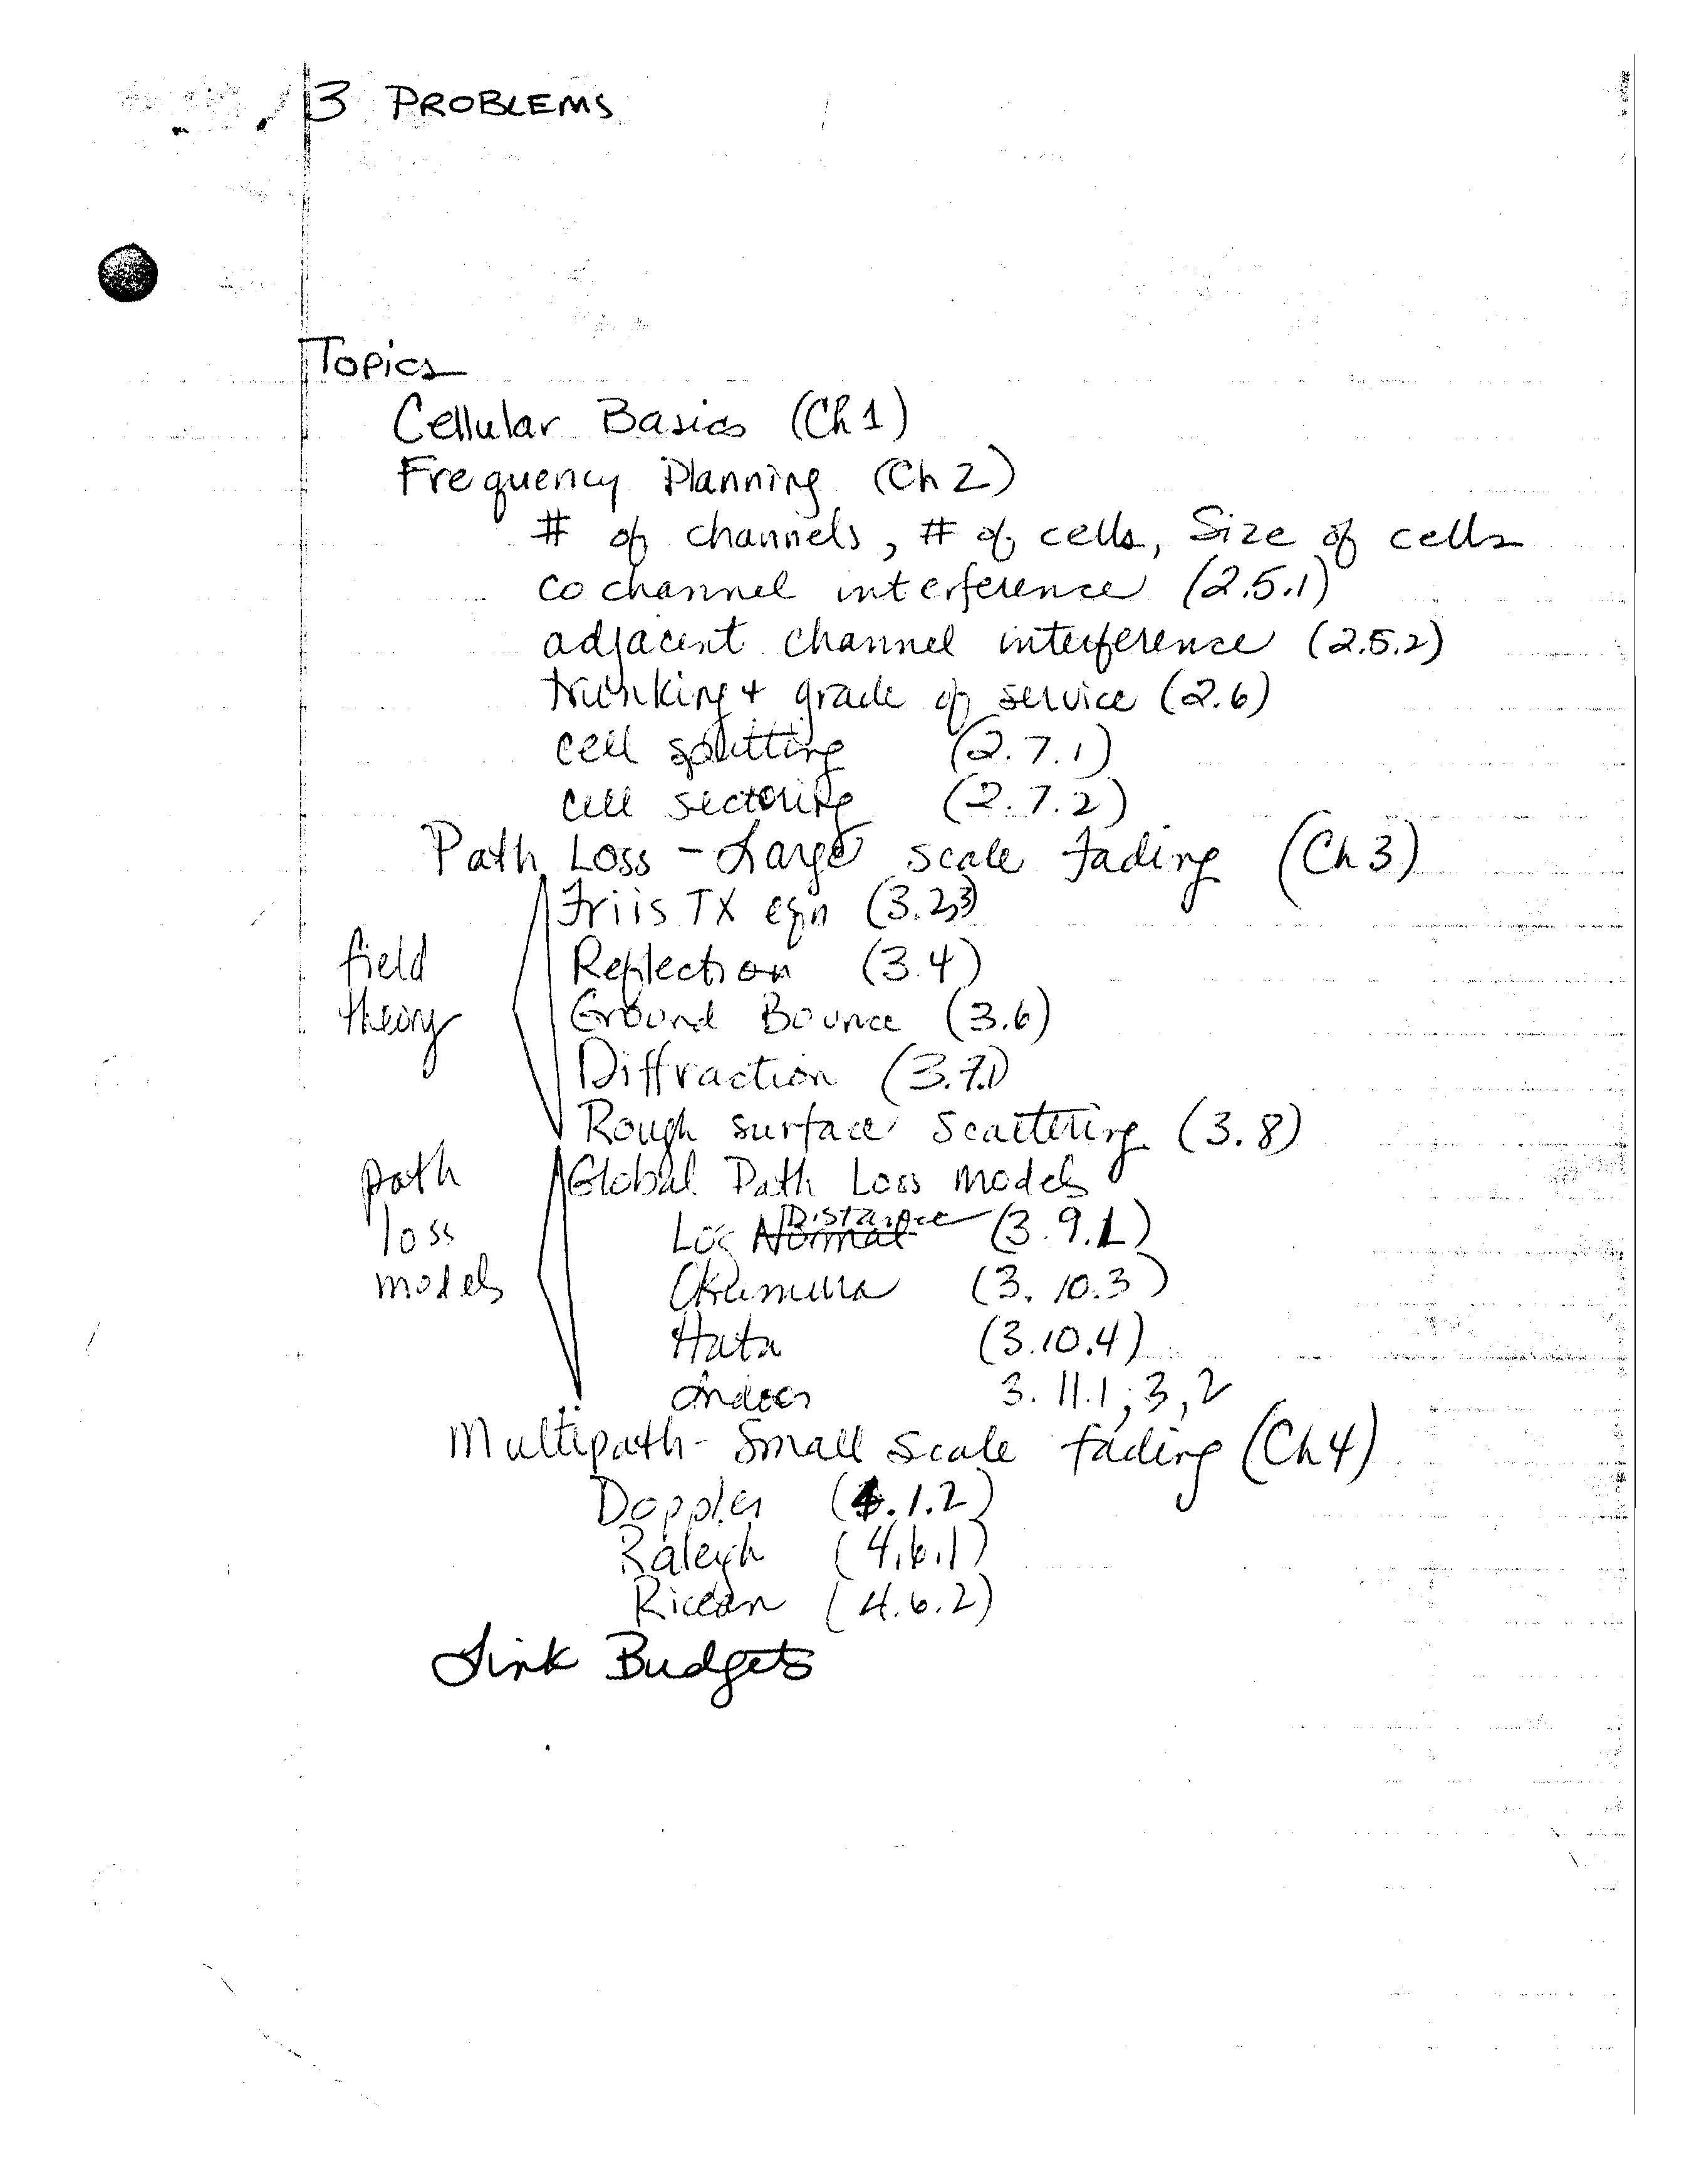 3 PROBLEMS
Topics
Cellular Basics (Ch 1)
Frequency Planning (Ch 2)
# of channels, # of cells, Size of cells
co channel interference (2.5.1)
adjacent channel interference (2.5.2)
trunking + grade of service (2.6)
cell splitting (2.7.1)
cell sectoring (2.7.2)
Path Loss - Large scale fading (Ch 3)
Friis TX eqn (3.2,3)
field theory
Reflection (3.4)
Ground Bounce (3.6)
Diffraction (3.7.1)
Rough surface scattering (3.8)
path loss models
Global Path Loss Models
Log Normal Distance (3.9.1)
Okumura (3.10.3)
Hata (3.10.4)
Indoor 3.11.1,3,2
Multipath - Small scale fading (Ch 4)
Doppler (4.1.2)
Raleigh (4.6.1)
Ricean (4.6.2)
Link Budgets